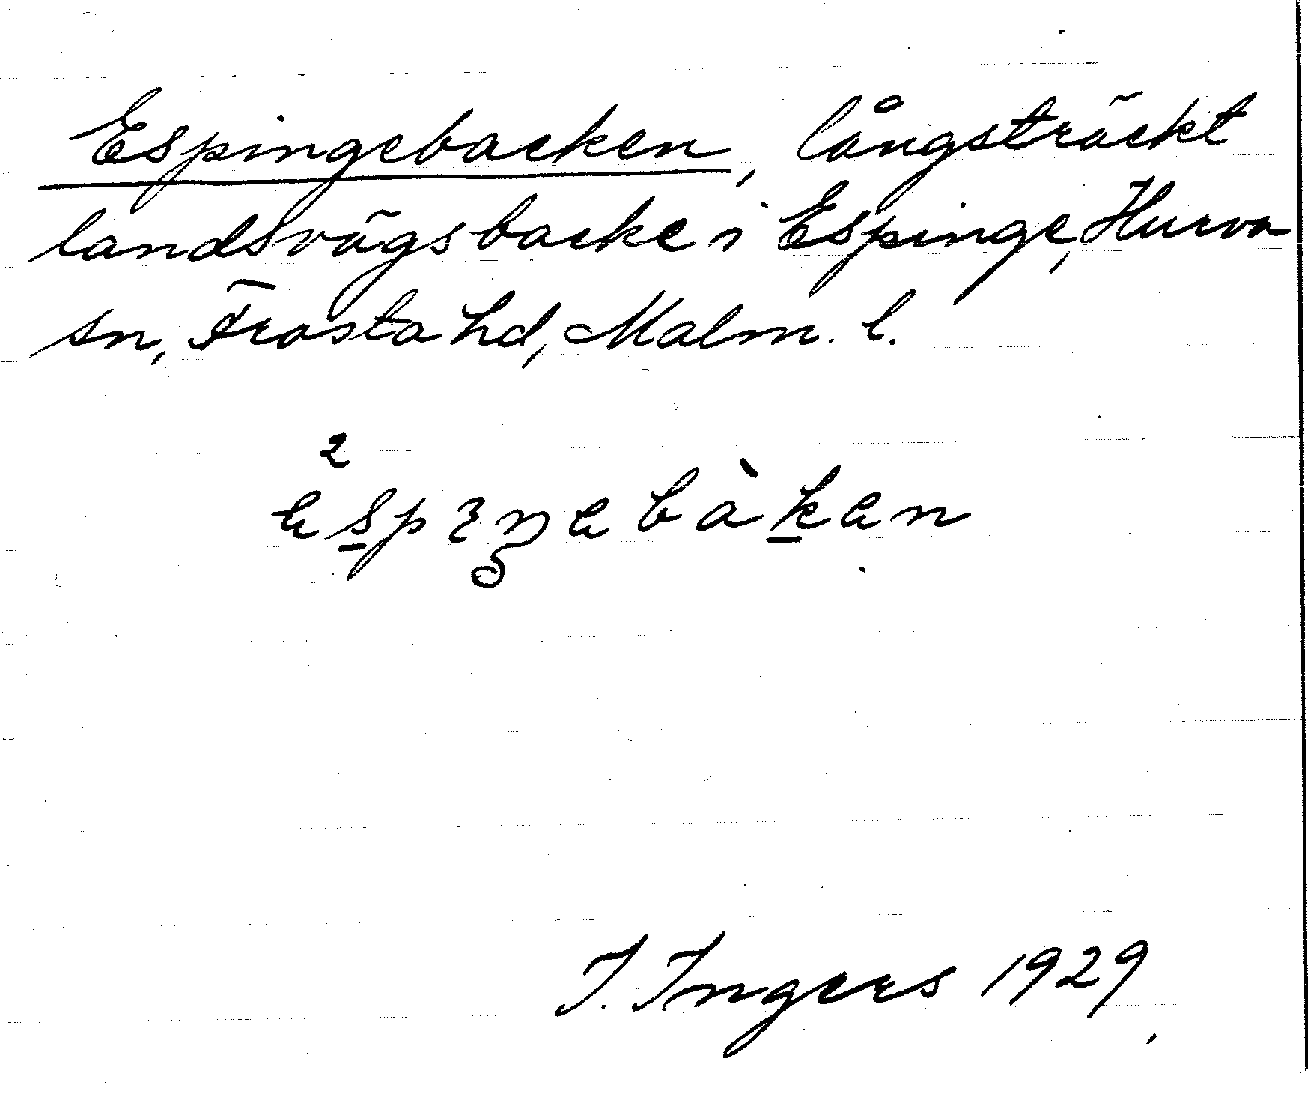 Espingebacken, långsträckt
landsvägsbacke i Espinge, Hurva
sn, Frosta hd, Malm. l.
2
espiŋebàken
I. Ingers 1929